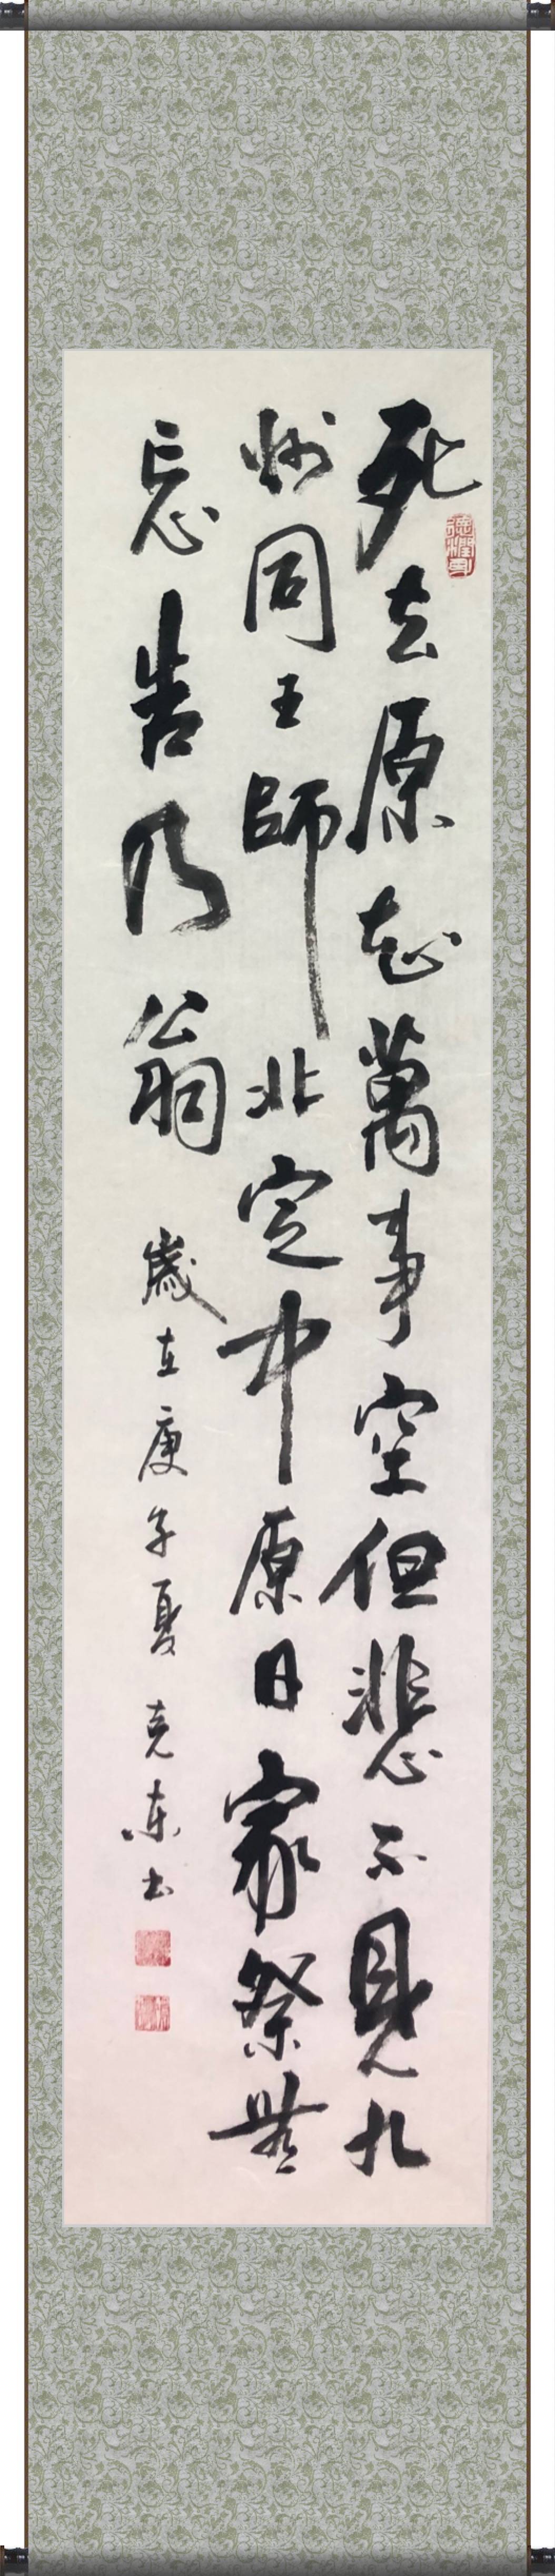 死去原知萬事空但悲不見九
州同王師北定中原日家祭無
忘告乃翁 歲在庚子夏 克東書